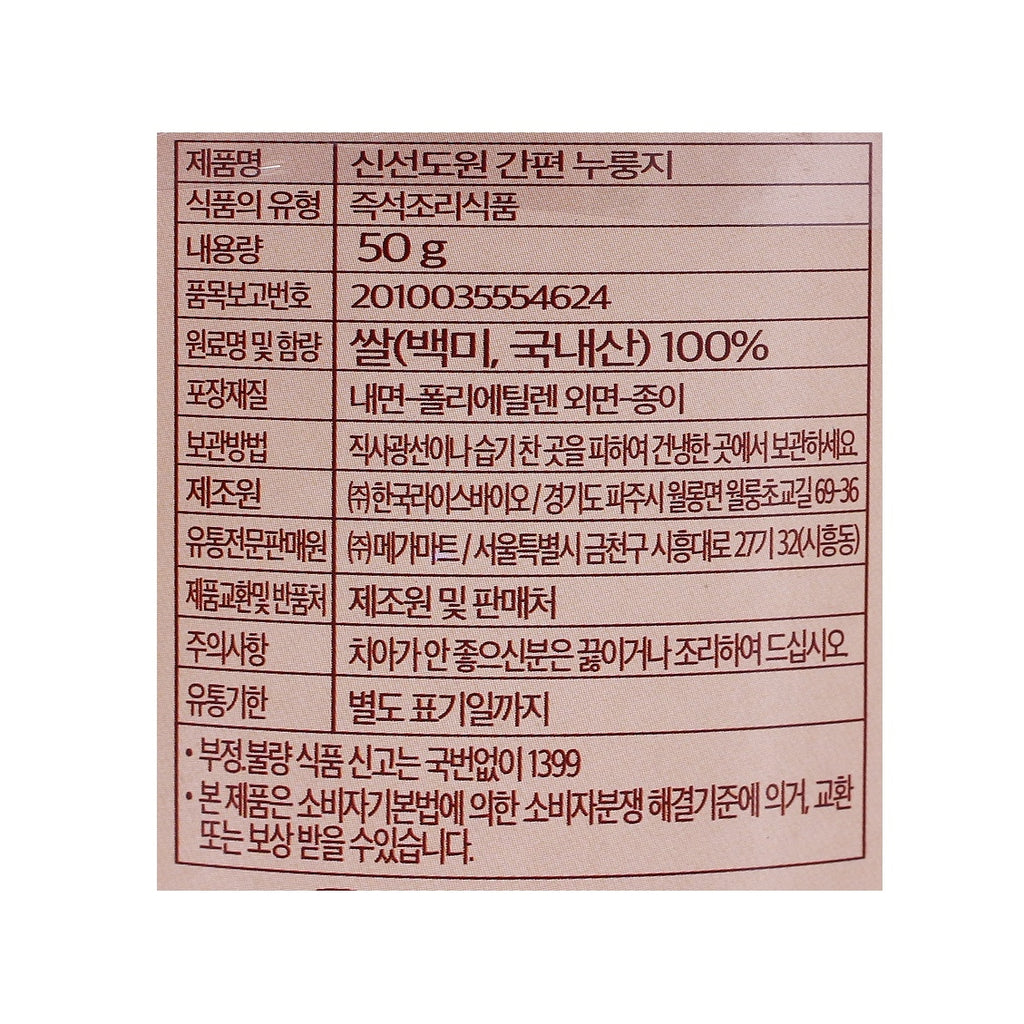 제품명 신선도원 간편 누룽지
식품의 유형 즉석조리식품
내용량 50 g
품목보고번호 2010035554624
원료명 및 함량 쌀(백미, 국내산) 100%
포장재질 내면-폴리에틸렌 외면-종이
보관방법 직사광선이나 습기 찬 곳을 피하여 건냉한 곳에서 보관하세요
제조원 ㈜한국라이스바이오 / 경기도 파주시 월롱면 월롱초교길 69-36
유통전문판매원 ㈜메가마트 / 서울특별시 금천구 시흥대로 27기 32(시흥동)
제품교환및 반품처 제조원 및 판매처
주의사항 치아가 안 좋으신분은 끓이거나 조리하여 드십시오
유통기한 별도 표기일까지
• 부정.불량 식품 신고는 국번없이 1399
• 본 제품은 소비자기본법에 의한 소비자분쟁 해결기준에 의거, 교환
또는 보상 받을 수있습니다.